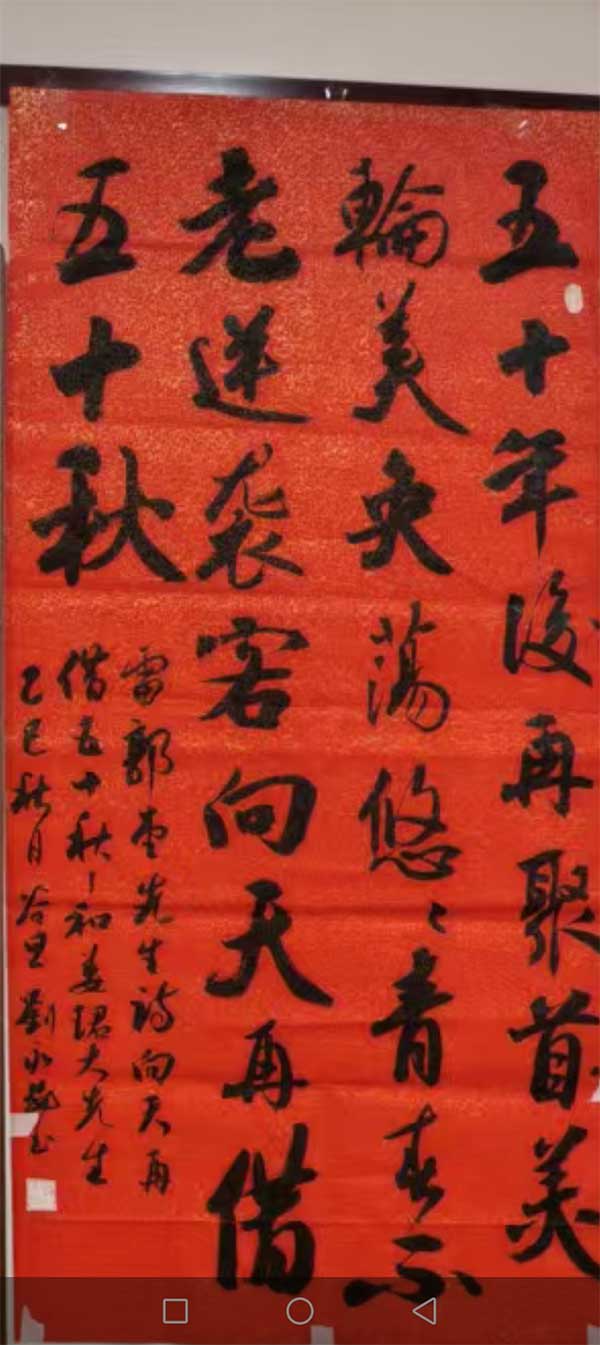 五十年後再聚首美
輪美奂蕩悠〻青春不
老逆袭客向天再借
五十秋
雷郭先生詩向天再
借五十秋和姜大先生
乙巳秋月谷里劉永书